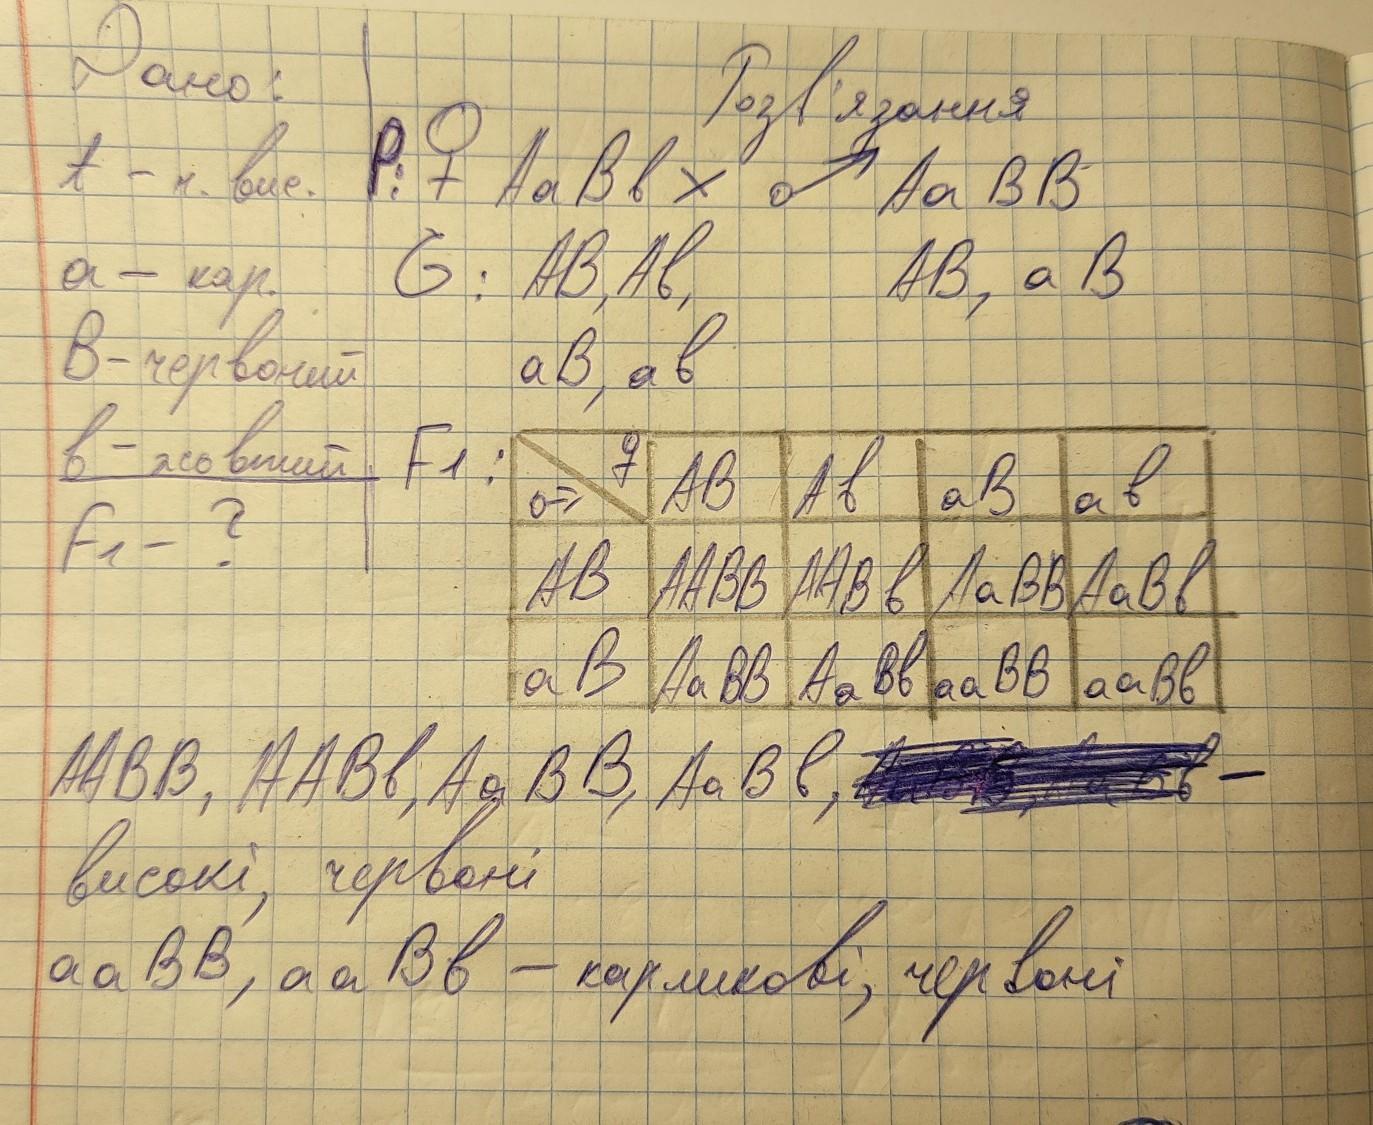 Дано:
Розв'язання
A - н. вис.
P: ♀ AaBв × ♂ AaBB
a - кар.
G: AB, Aв,
AB, aB
B - червоний
aB, aв
в - жовтий
F1 - ?
F1:
♂ ♀ AB Aв aB aв
AB AABB AABв AaBB AaBв
aB AaBB AaBв aaBB aaBв
AABB, AABв, AaBB, AaBв, -
високі, червоні
aaBB, aaBв - карликові, червоні